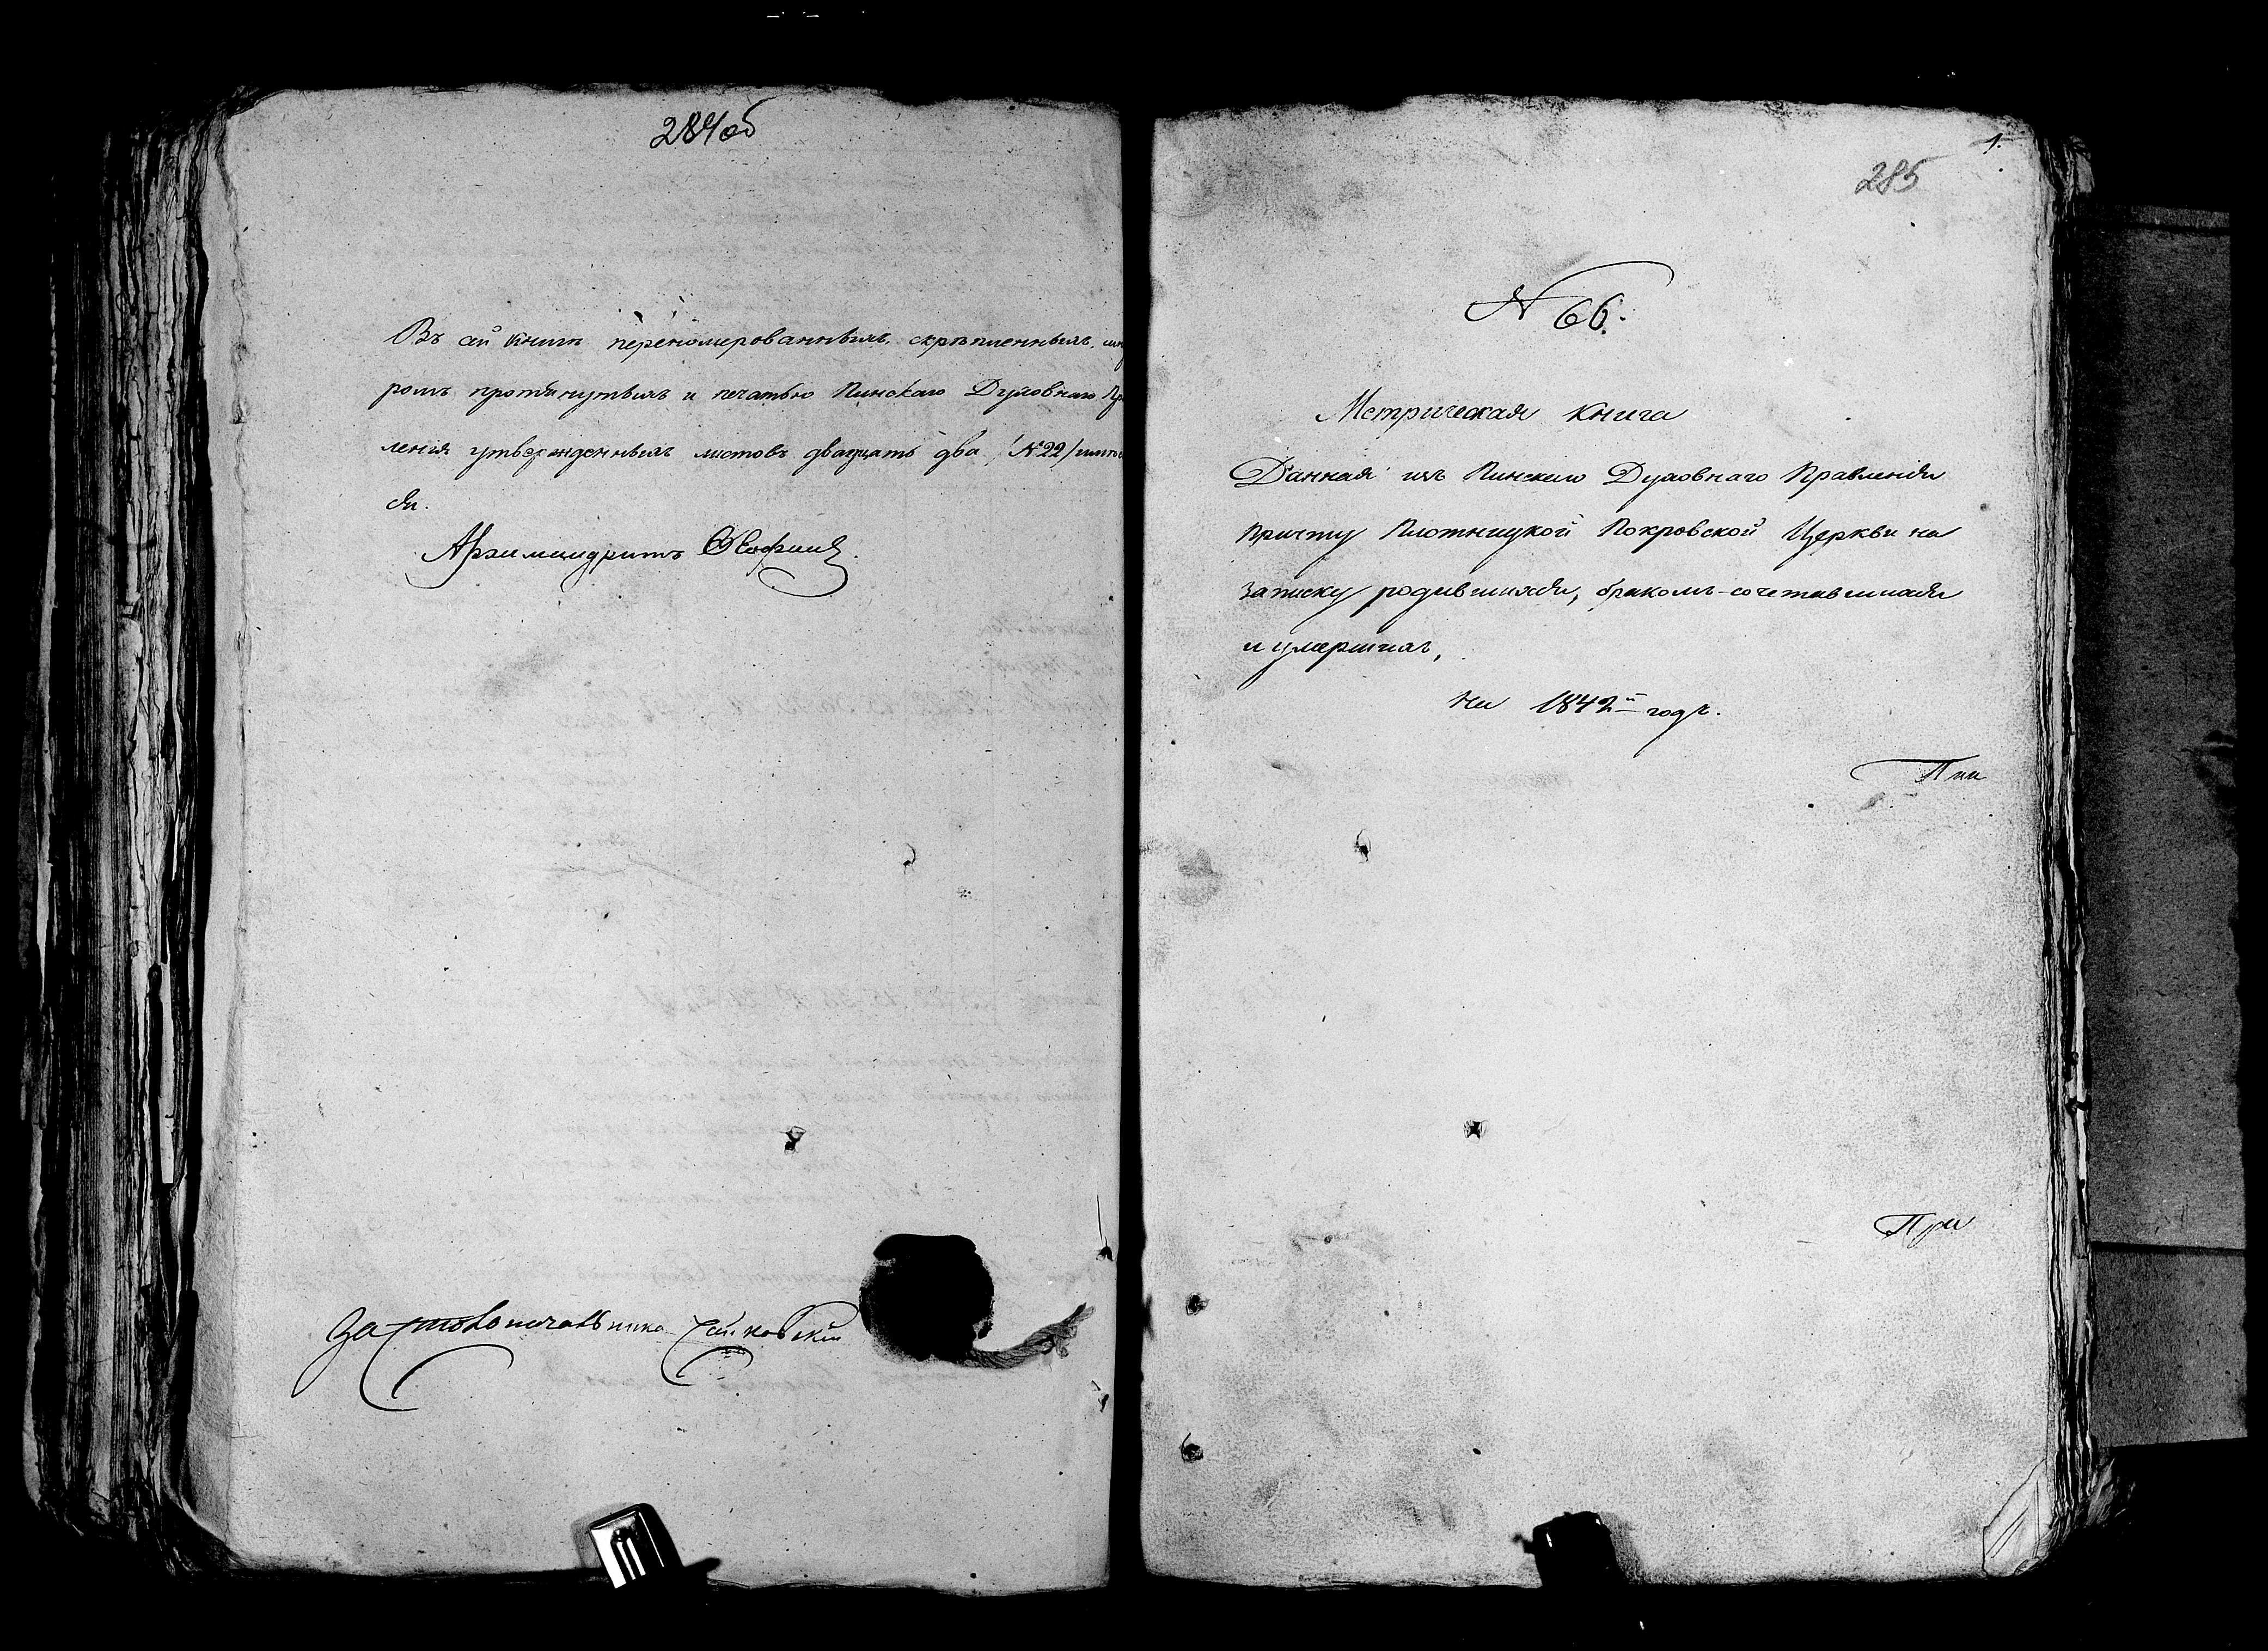 284об
Въ сей книгѣ перенумерованныхъ, скрѣпленныхъ, шну
ромъ протянутыхъ и печатью Пинскаго Духовнаго Пр
ленія утвержденныхъ листовъ двадцать два /№22/
ся.
Архимандритъ
За столоначальника
1.
285
№ 66.
Метрическая книга
Данная изъ Пинскаго Духовнаго Правленія
причту Плотницкой Покровской Церкви на
записку родившихся, бракомъ-сочетавшихся
и умершихъ,
на 1842й годъ.
Пин
При